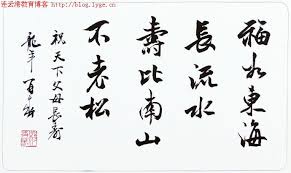 连云港教育博客 http://blog.lyge.cn
福如東海
長流水
壽比南山
不老松
祝天下父母長壽
龍年